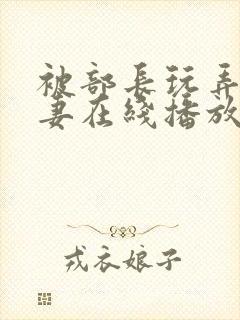 被部長玩弄
妻在綫播放
戎衣娘子